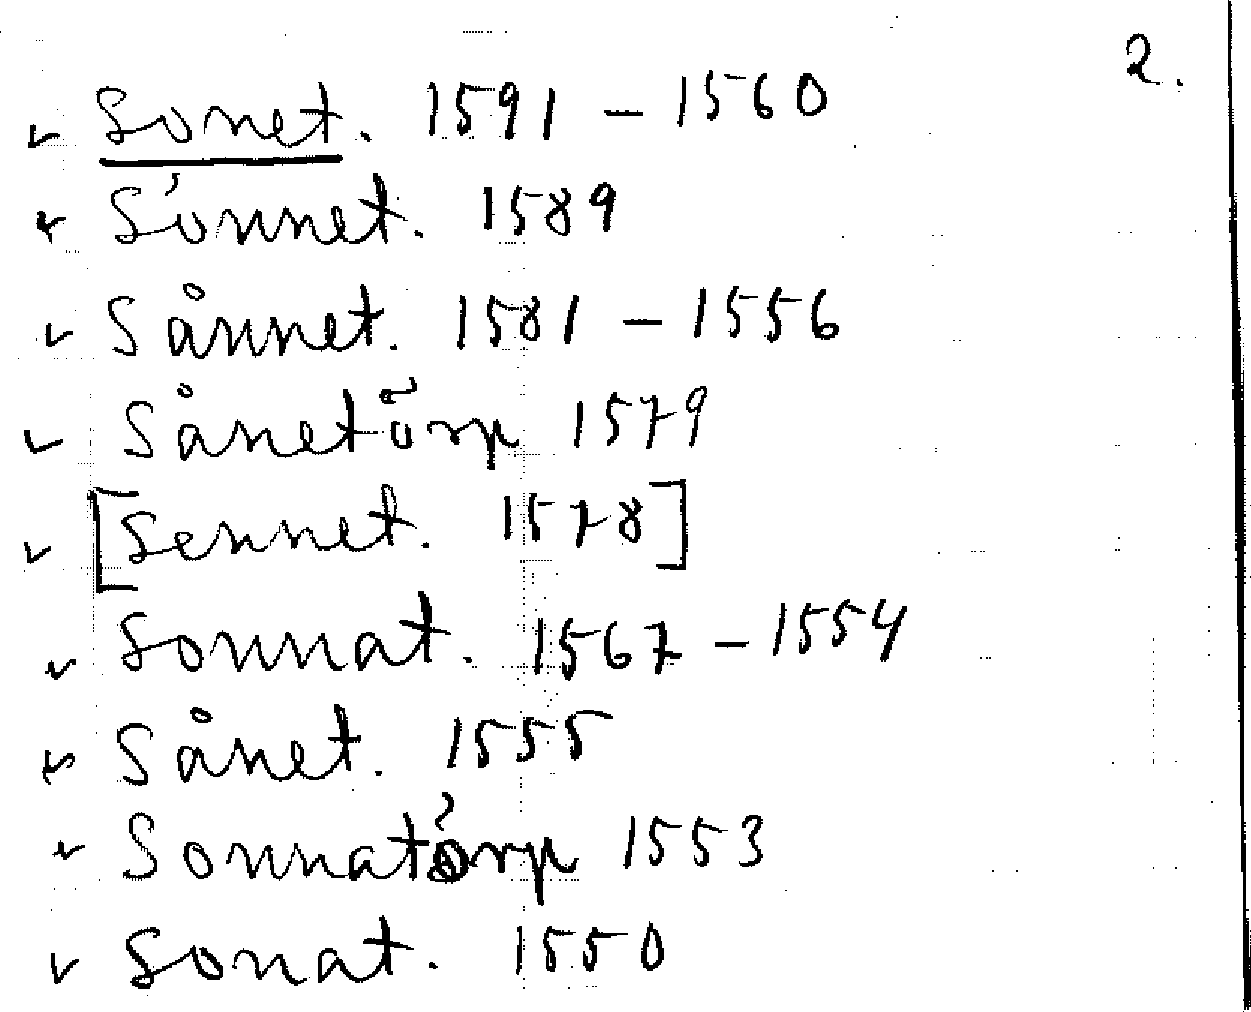 2.
Sonet. 1591 - 1560
Sónnet. 1589
Sånnet. 1581 - 1556
Sånetörp 1579
[Sennet. 1578]
Sonnat. 1567 - 1554
Sånet. 1555
Sonnatórp 1553
Sonat. 1550